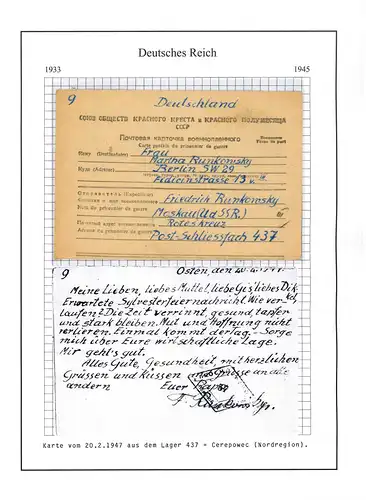 Deutsches Reich
1933 1945
9 Deutschland
СОЮЗ ОБЩЕСТВ КРАСНОГО КРЕСТА и КРАСНОГО ПОЛУМЕСЯЦА
СССР
Почтовая карточка военнопленного
Carte postale du prisonnier de guerre
Frau
Кому (Destinataire) Martha Runkowsky
Куда (Adresse) Berlin SW 29
Fidicinstrasse 13 v.
Отправитель (Expéditeur)
Friedrich Runkowsky
Nom du prisonnier de guerre
Moskau (UdSSR)
Rotes Kreuz
Adresse du prisonnier de guerre Post-Schliessfach 437
9 Osten, den
Meine Lieben, liebes Muttel, liebe Gis, liebes Dik
Erwartete Sylvesterfeiernachricht. Wie ver-
laufen? Die Zeit verrinnt, gesund, tapfer
und stark bleiben. Mut und Hoffnung nicht
verlieren. Einmal kommt der Tag. - Sorge
mich über Eure wirtschaftliche Lage.
Mir geht's gut.
Alles Gute, Gesundheit, mit herzlichen
Grüssen und Küssen Grüsse an alle
andern Euer
Karte vom 20.2.1947 aus dem Lager 437 = Cerepowec (Nordregion).